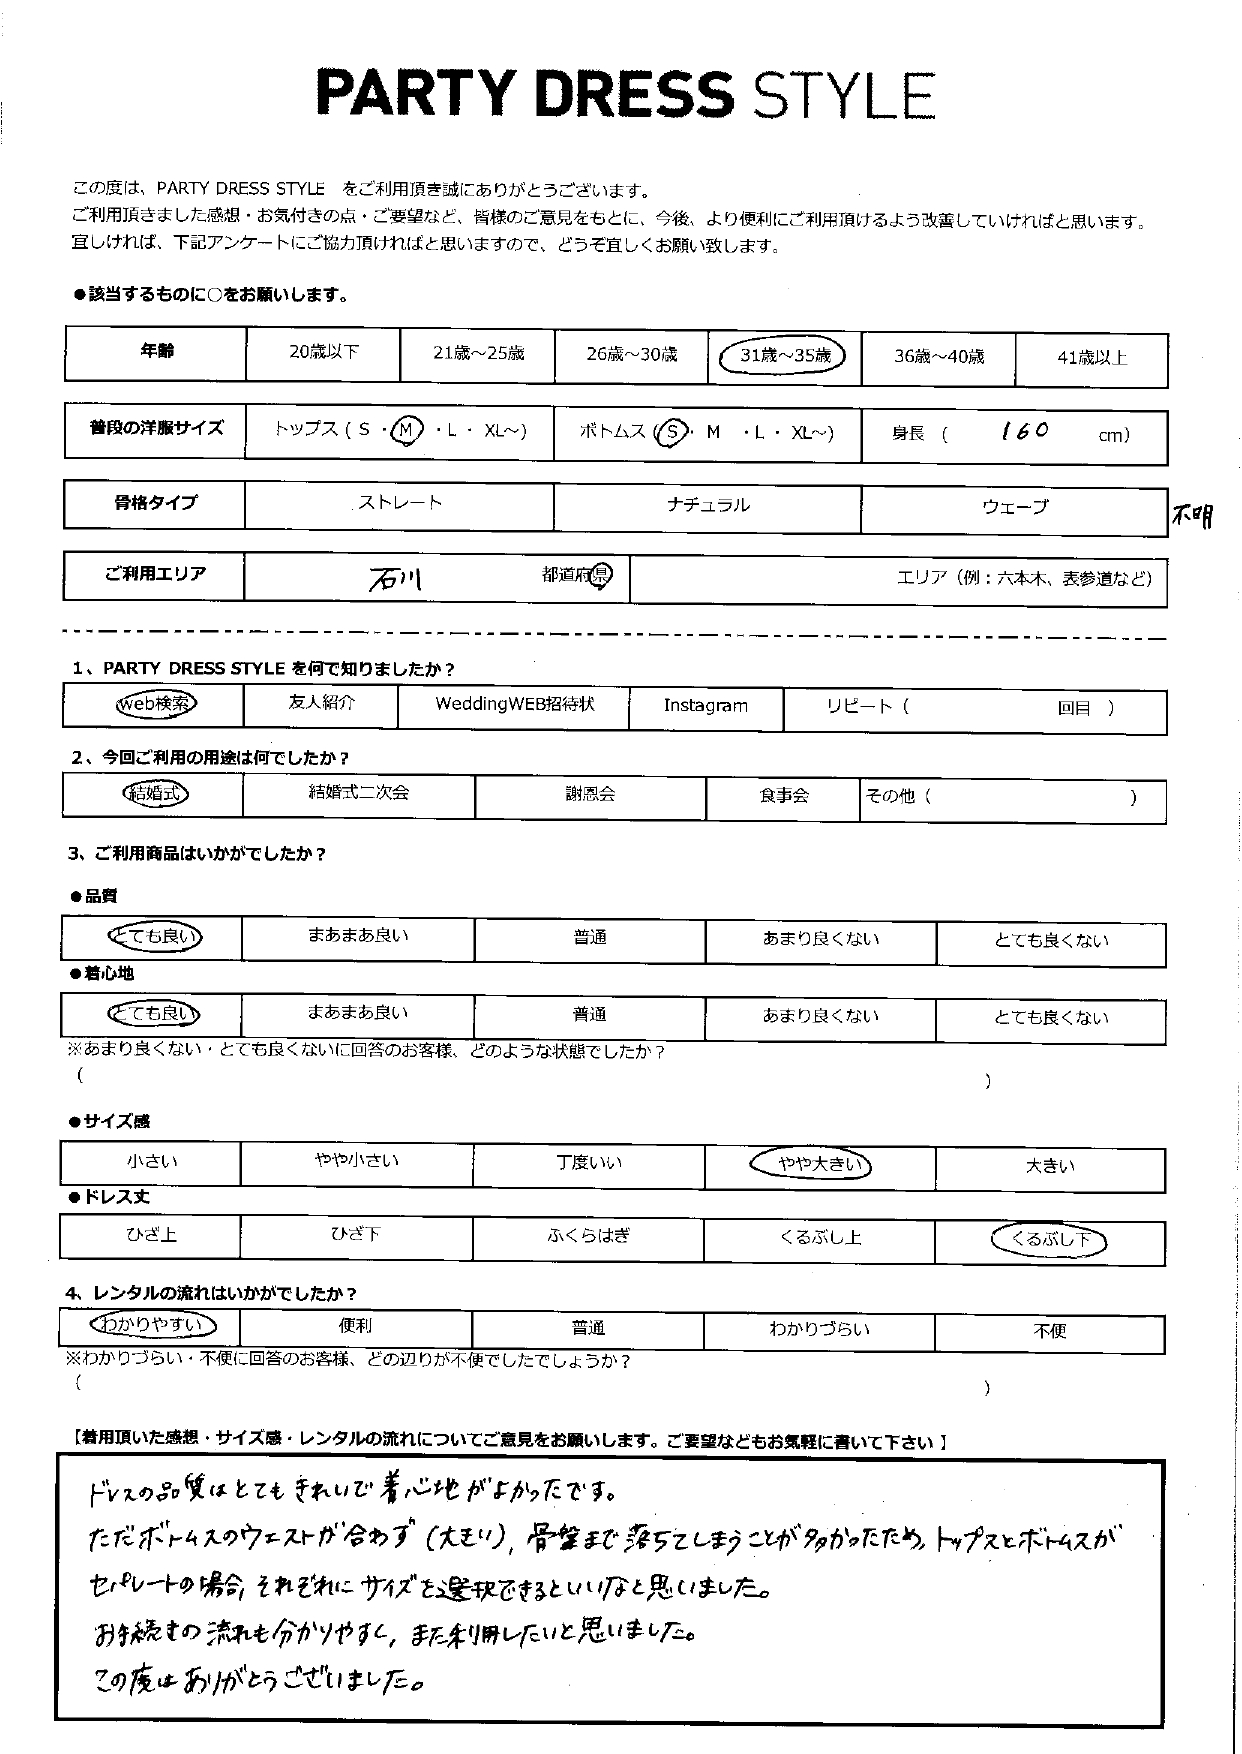 PARTY DRESS STYLE
この度は、PARTY DRESS STYLE をご利用頂き誠にありがとうございます。
ご利用頂きました感想・お気付きの点・ご要望など、皆様のご意見をもとに、今後、より便利にご利用頂けるよう改善していければと思います。
宜しければ、下記アンケートにご協力頂ければと思いますので、どうぞ宜しくお願い致します。
●該当するものに○をお願いします。
年齢 20歳以下 21歳～25歳 26歳～30歳 31歳～35歳 36歳～40歳 41歳以上
普段の洋服サイズ トップス ( S ・ M ・L ・ XL～) ボトムス ( S ・ M ・L ・ XL～) 身長 ( 160 cm)
骨格タイプ ストレート ナチュラル ウェーブ 不明
ご利用エリア 石川 都道府県 エリア（例：六本木、表参道など）
1、PARTY DRESS STYLE を何で知りましたか？
Web検索 友人紹介 WeddingWEB招待状 Instagram リピート ( 回目 )
2、今回ご利用の用途は何でしたか？
結婚式 結婚式二次会 謝恩会 食事会 その他 ( )
3、ご利用商品はいかがでしたか？
●品質
とても良い まあまあ良い 普通 あまり良くない とても良くない
●着心地
とても良い まあまあ良い 普通 あまり良くない とても良くない
※あまり良くない・とても良くないに回答のお客様、どのような状態でしたか？
( )
●サイズ感
小さい やや小さい 丁度いい やや大きい 大きい
●ドレス丈
ひざ上 ひざ下 ふくらはぎ くるぶし上 くるぶし下
4、レンタルの流れはいかがでしたか？
わかりやすい 便利 普通 わかりづらい 不便
※わかりづらい・不便に回答のお客様、どの辺りが不便でしたでしょうか？
( )
【着用頂いた感想・サイズ感・レンタルの流れについてご意見をお願いします。ご要望などもお気軽に書いて下さい】
ドレスの品質はとてもきれいで着心地がよかったです。
ただボトムスのウェストが合わず（大きい）、骨盤まで落ちてしまうことが多かったため、トップスとボトムスが
セパレートの場合、それぞれにサイズを選択できるといいなと思いました。
お手続きの流れも分かりやすく、また利用したいと思いました。
この度はありがとうございました。